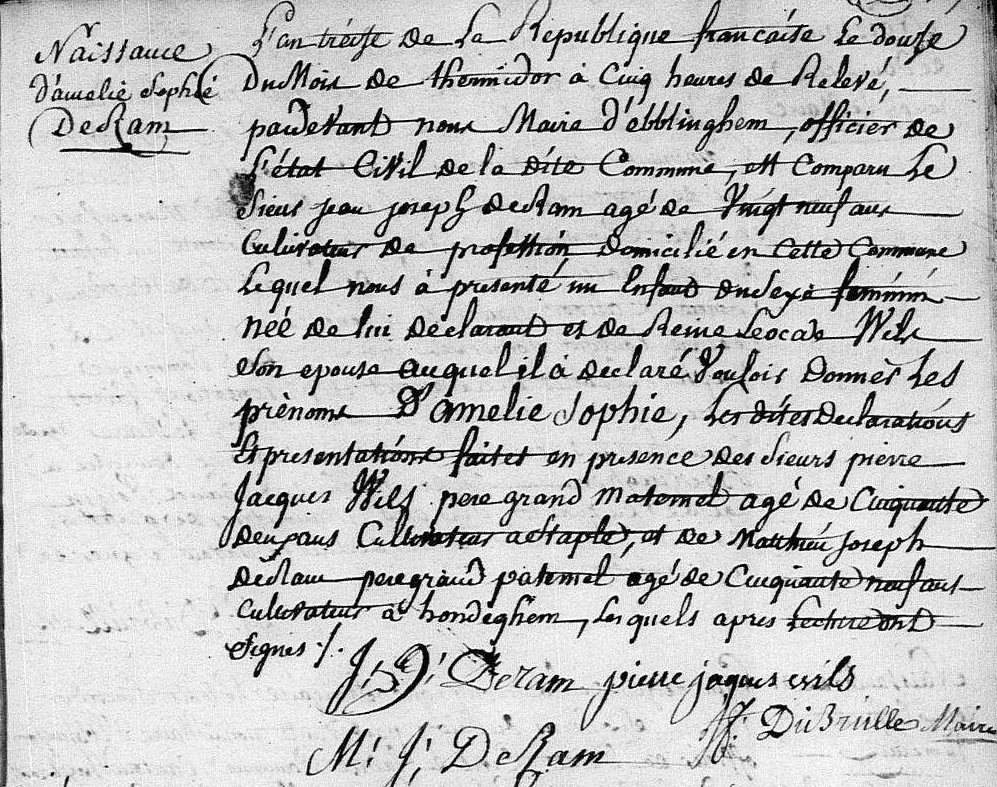 Naissance
d'amelie Sophie
DeRam
L'an treise de La Republique francaise Le douse
Du Mois de thermidor à Cinq heures de Relevé,
pardevant nous Maire d'ebblinghem, officier de
L'état Civil de la dite Commune, est Comparu Le
Sieur jean joseph deRam agé de Vingt neuf ans
Cultivateur de profession Domicilié en Cette Commune
Lequel nous à presenté un Enfant du Sexe feminin
neé de lui declarant et de Reine Leocade Wils
Son epouse auquel il à declaré Vouloir Donner Les
prénoms D'amelie Sophie, Les dites Declarations
Et presentations faites en presence des Sieurs pierre
Jacques Wils pere grand maternel agé de Cinquante
deux ans Cultivateur a Staple, et de Matthieu joseph
deRam pere grand paternel agé de Cinquante neuf ans
Cultivateur à hondeghem, Lesquels apres Lecture ont
Signes /.
J: J: DeRam pierre jaques wils
DuBrulle Maire
M: J: DeRam